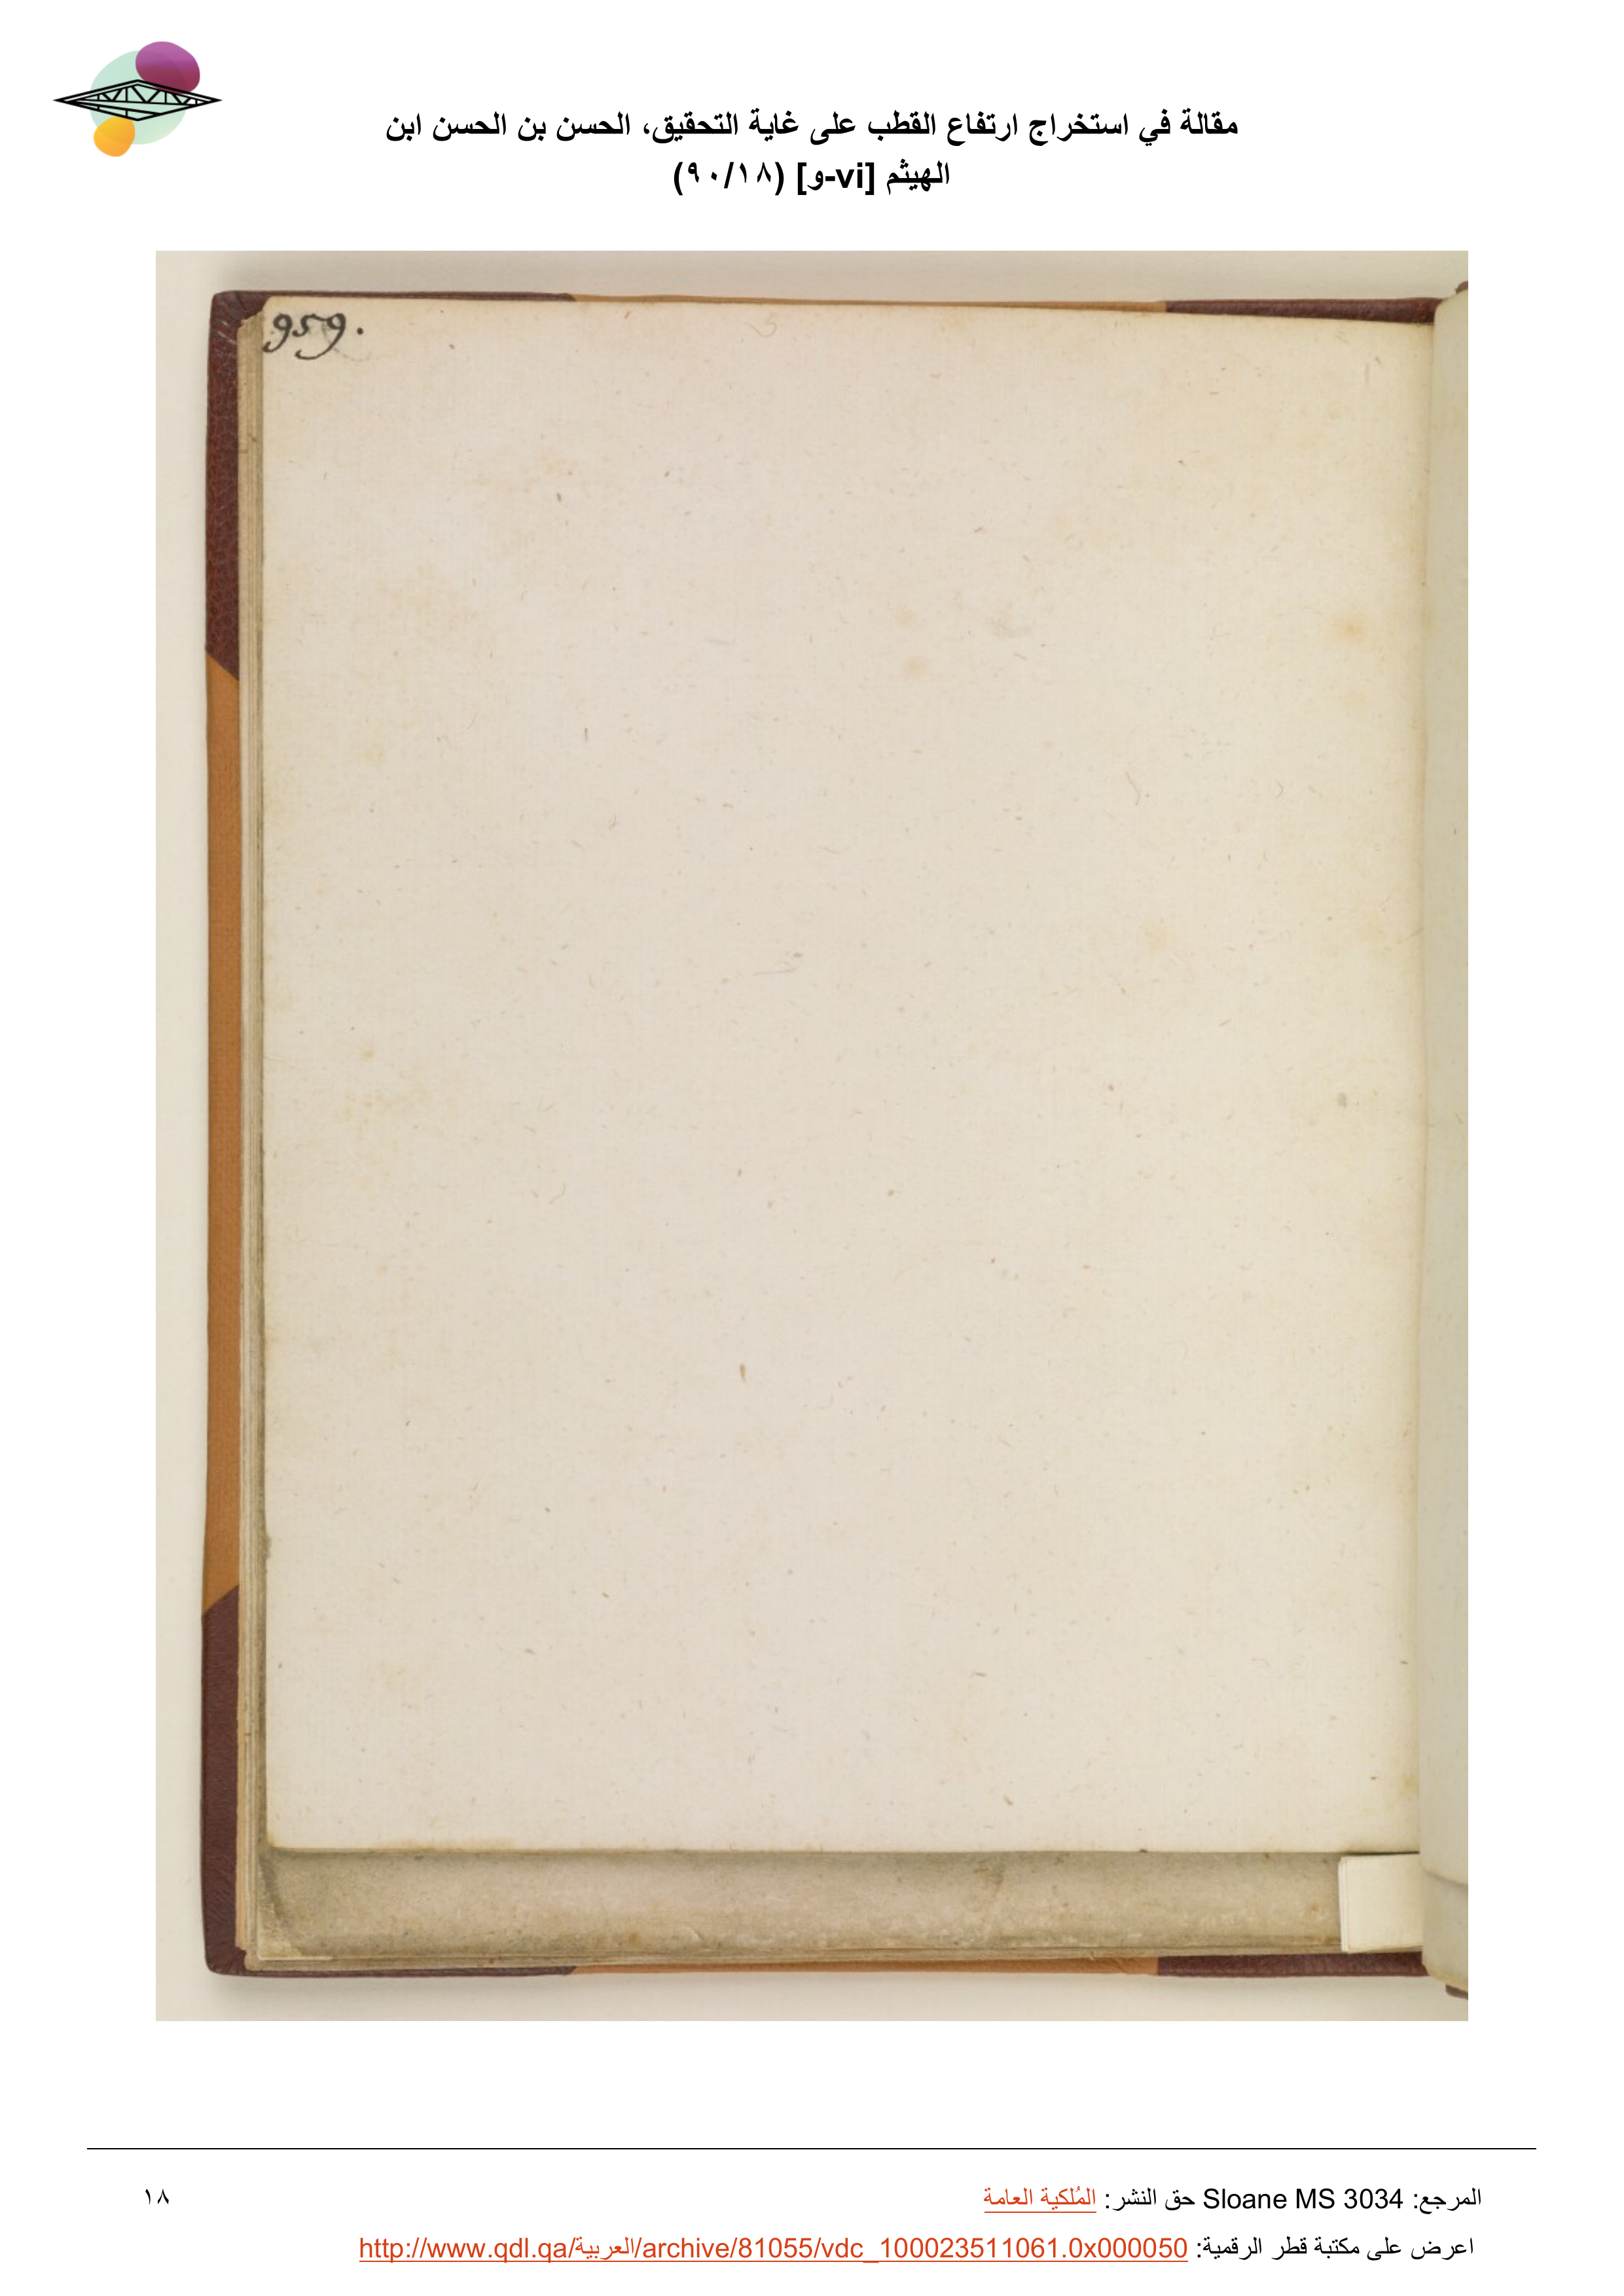 مقالة في استخراج ارتفاع القطب على غاية التحقيق، الحسن بن الحسن ابن
الهيثم [vi-و] (١٨/٩٠)
959.
المرجع: Sloane MS 3034 حق النشر: المُلكية العامة
١٨
اعرض على مكتبة قطر الرقمية: http://www.qdl.qa/العربية/archive/81055/vdc_100023511061.0x000050